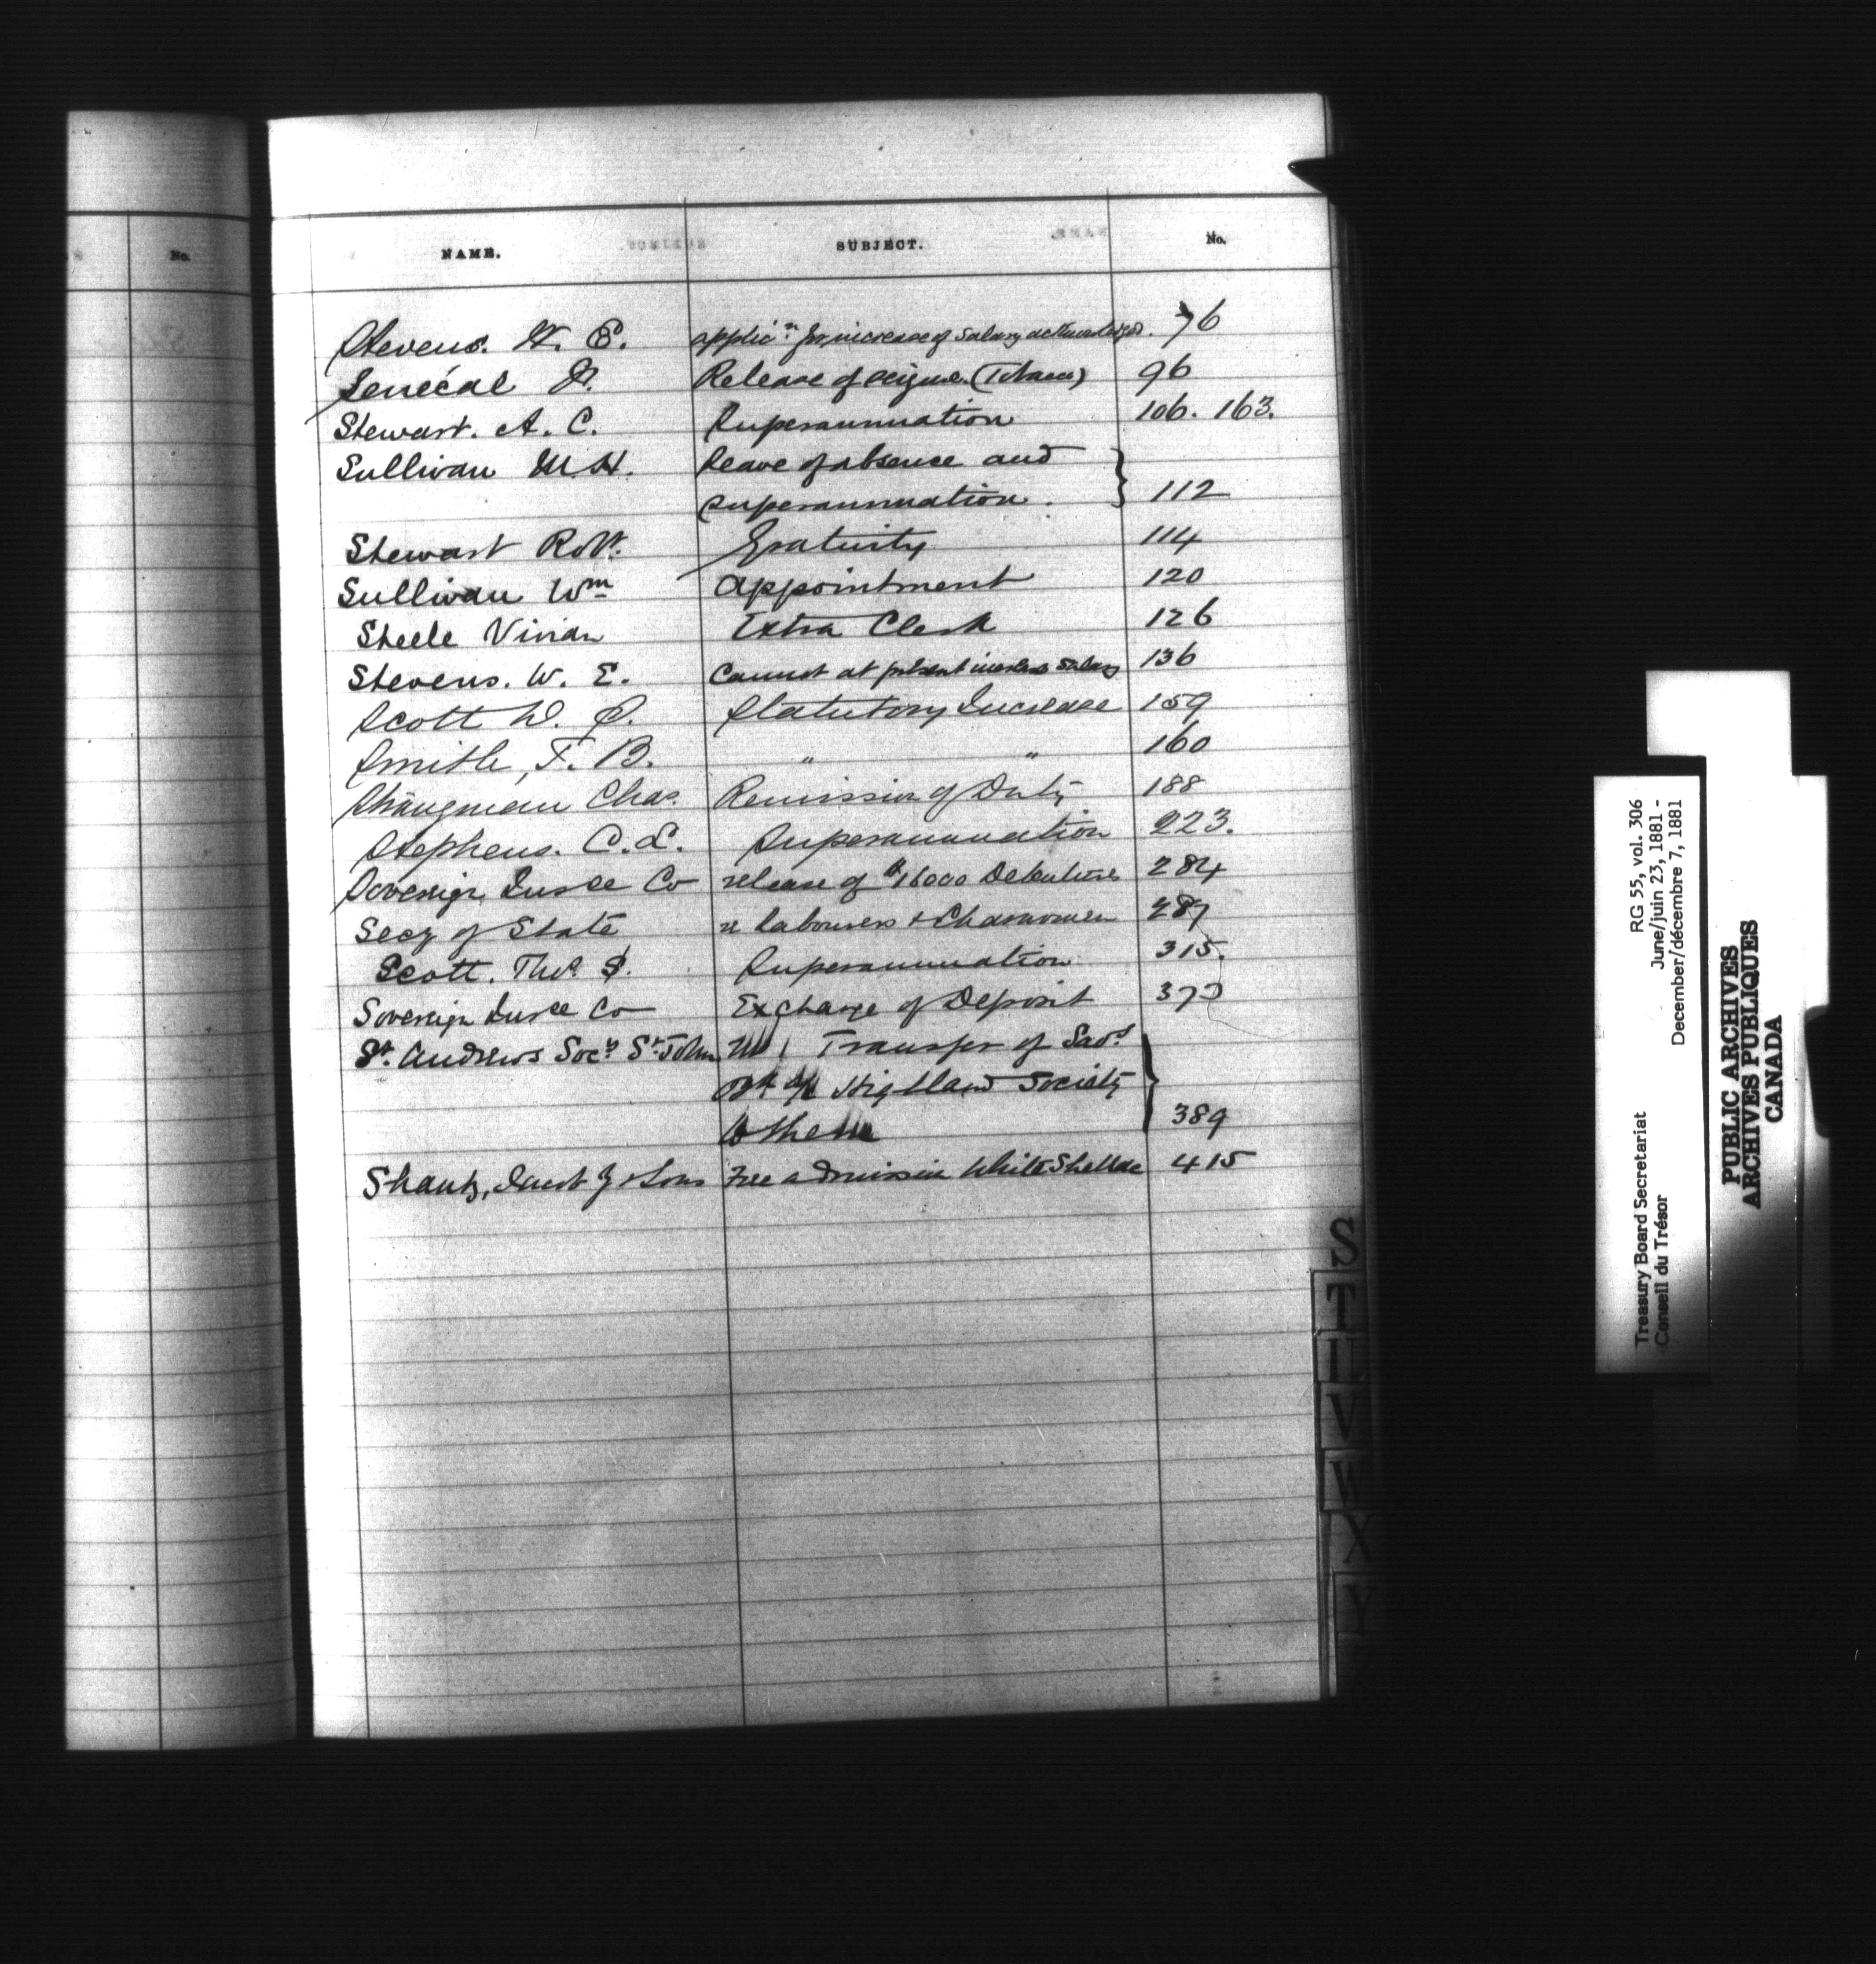 No.
NAME. SUBJECT. No.
Stevens. W. E. applicn for increase of Salary 76
Senécal D. Release of seizure (Tobacco) 96
Stewart. A. C. Superannuation 106. 163.
Sullivan M. H. Leave of absence and
superannuation. 112
Stewart Robt. Gratuity 114
Sullivan Wm Appointment 120
Steele Vivian Extra Clerk 126
Stevens. W. E. Cannot at present increase Salary 136
Scott W. Statutory Increase 159
Smith, F. B. " " 160
Chas. Remission of Duty 188
Stephens. C. L. Superannuation 223.
Sovereign Insce Co release of $16000 Debentures 284
Secy of State re labourers & Charwomen 287
Scott. Thos. S. Superannuation 315.
Sovereign Insce Co Exchange of Deposit 373
St. Andrews Socy St. John Transfer of Savs
Bk a/c Highland Society
to them 389
Shantz, Jacob Y & Sons Free admission White Shellac 415
S
T
U
V
W
X
Y
Treasury Board Secretariat RG 55, vol. 306
Conseil du Trésor June/juin 23, 1881 -
December/décembre 7, 1881
PUBLIC ARCHIVES
ARCHIVES PUBLIQUES
CANADA